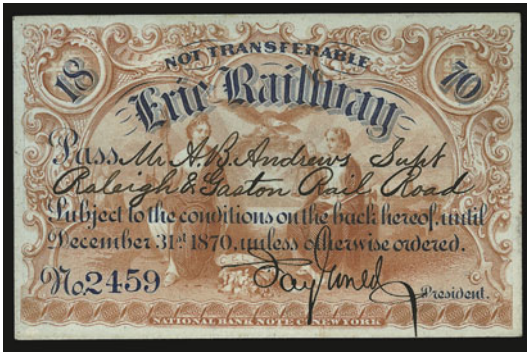 NOT TRANSFERABLE
18 70
Erie Railway
Pass Mr A.B. Andrews Supt
Raleigh & Gaston Rail Road
Subject to the conditions on the back hereof, until
December 31st 1870, unless otherwise ordered.
No. 2459 Jay Gould President.
NATIONAL BANK NOTE Co. NEW YORK